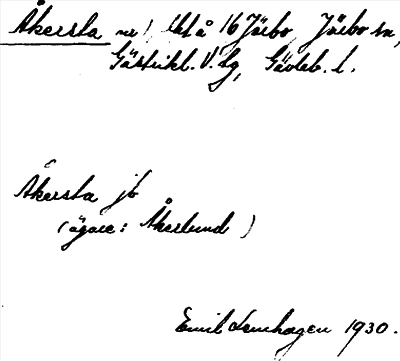 Åkersta nr 1, lht å 16 Järbo, Järbo sn,
Gästrikl. V. tg, Gävleb. l.
Åkersta jb
(ägare: Åkerlund)
Emil Lenhagen 1930.